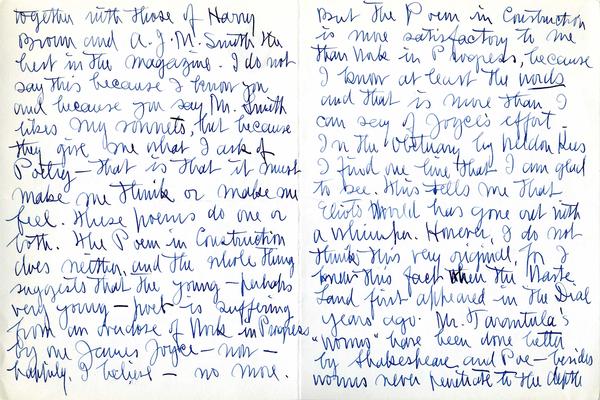 together with those of Harry
Brown and A.J.M. Smith the
best in the magazine. I do not
say this because I know you
and because you say Mr. Smith
likes my sonnets, but because
they give me what I ask of
Poetry – that is that it must
make me think or make me
feel. These poems do one or
both. The Poem in Construction
does neither, and the whole thing
suggests that the young – perhaps
very young – poet is suffering
from an overdose of Work in Progress
by one James Joyce – now –
happily, I believe – no more.
But the Poem in Construction
is more satisfactory to me
than Work in Progress, because
I know at least the words
and that is more than I
can say of Joyce's effort.
In the Obituary by Weldon Kees
I find one line that I am glad
to see. This tells me that
Eliot's World has gone out with
a whimper. However, I do not
think this very original, for I
knew this fact when the Waste
Land first appeared in the Dial
years ago. Mr. Tarantula's
"worms" have been done better
by Shakespeare and Poe – besides
worms never penetrate to the depth